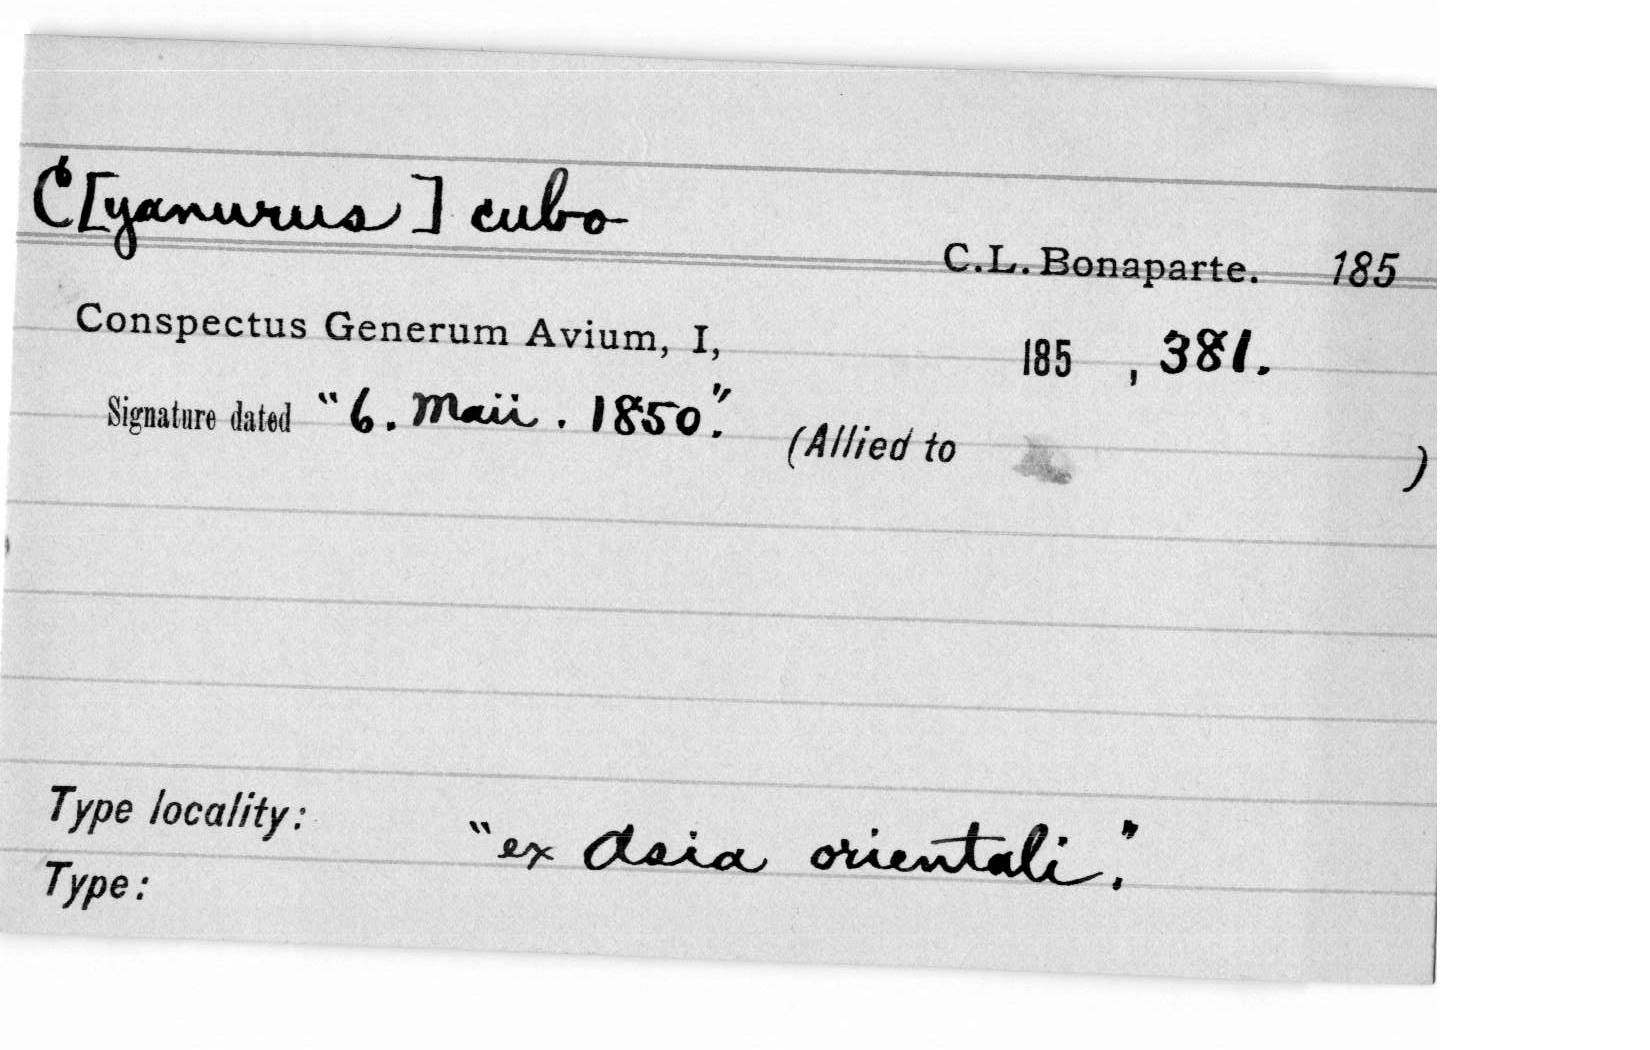 C[yanurus] cubo
C.L. Bonaparte. 185
Conspectus Generum Avium, I, 185 , 381.
Signature dated "6. Maii. 1850".
(Allied to )
Type locality: "ex Asia orientali."
Type: